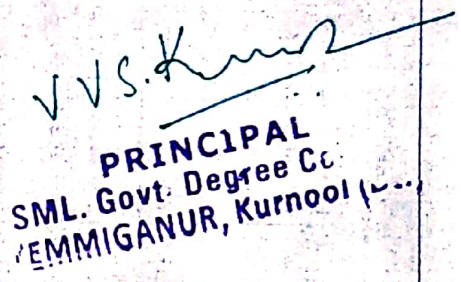 VVS.Kumar
PRINCIPAL
SML. Govt. Degree Co
YEMMIGANUR, Kurnool (